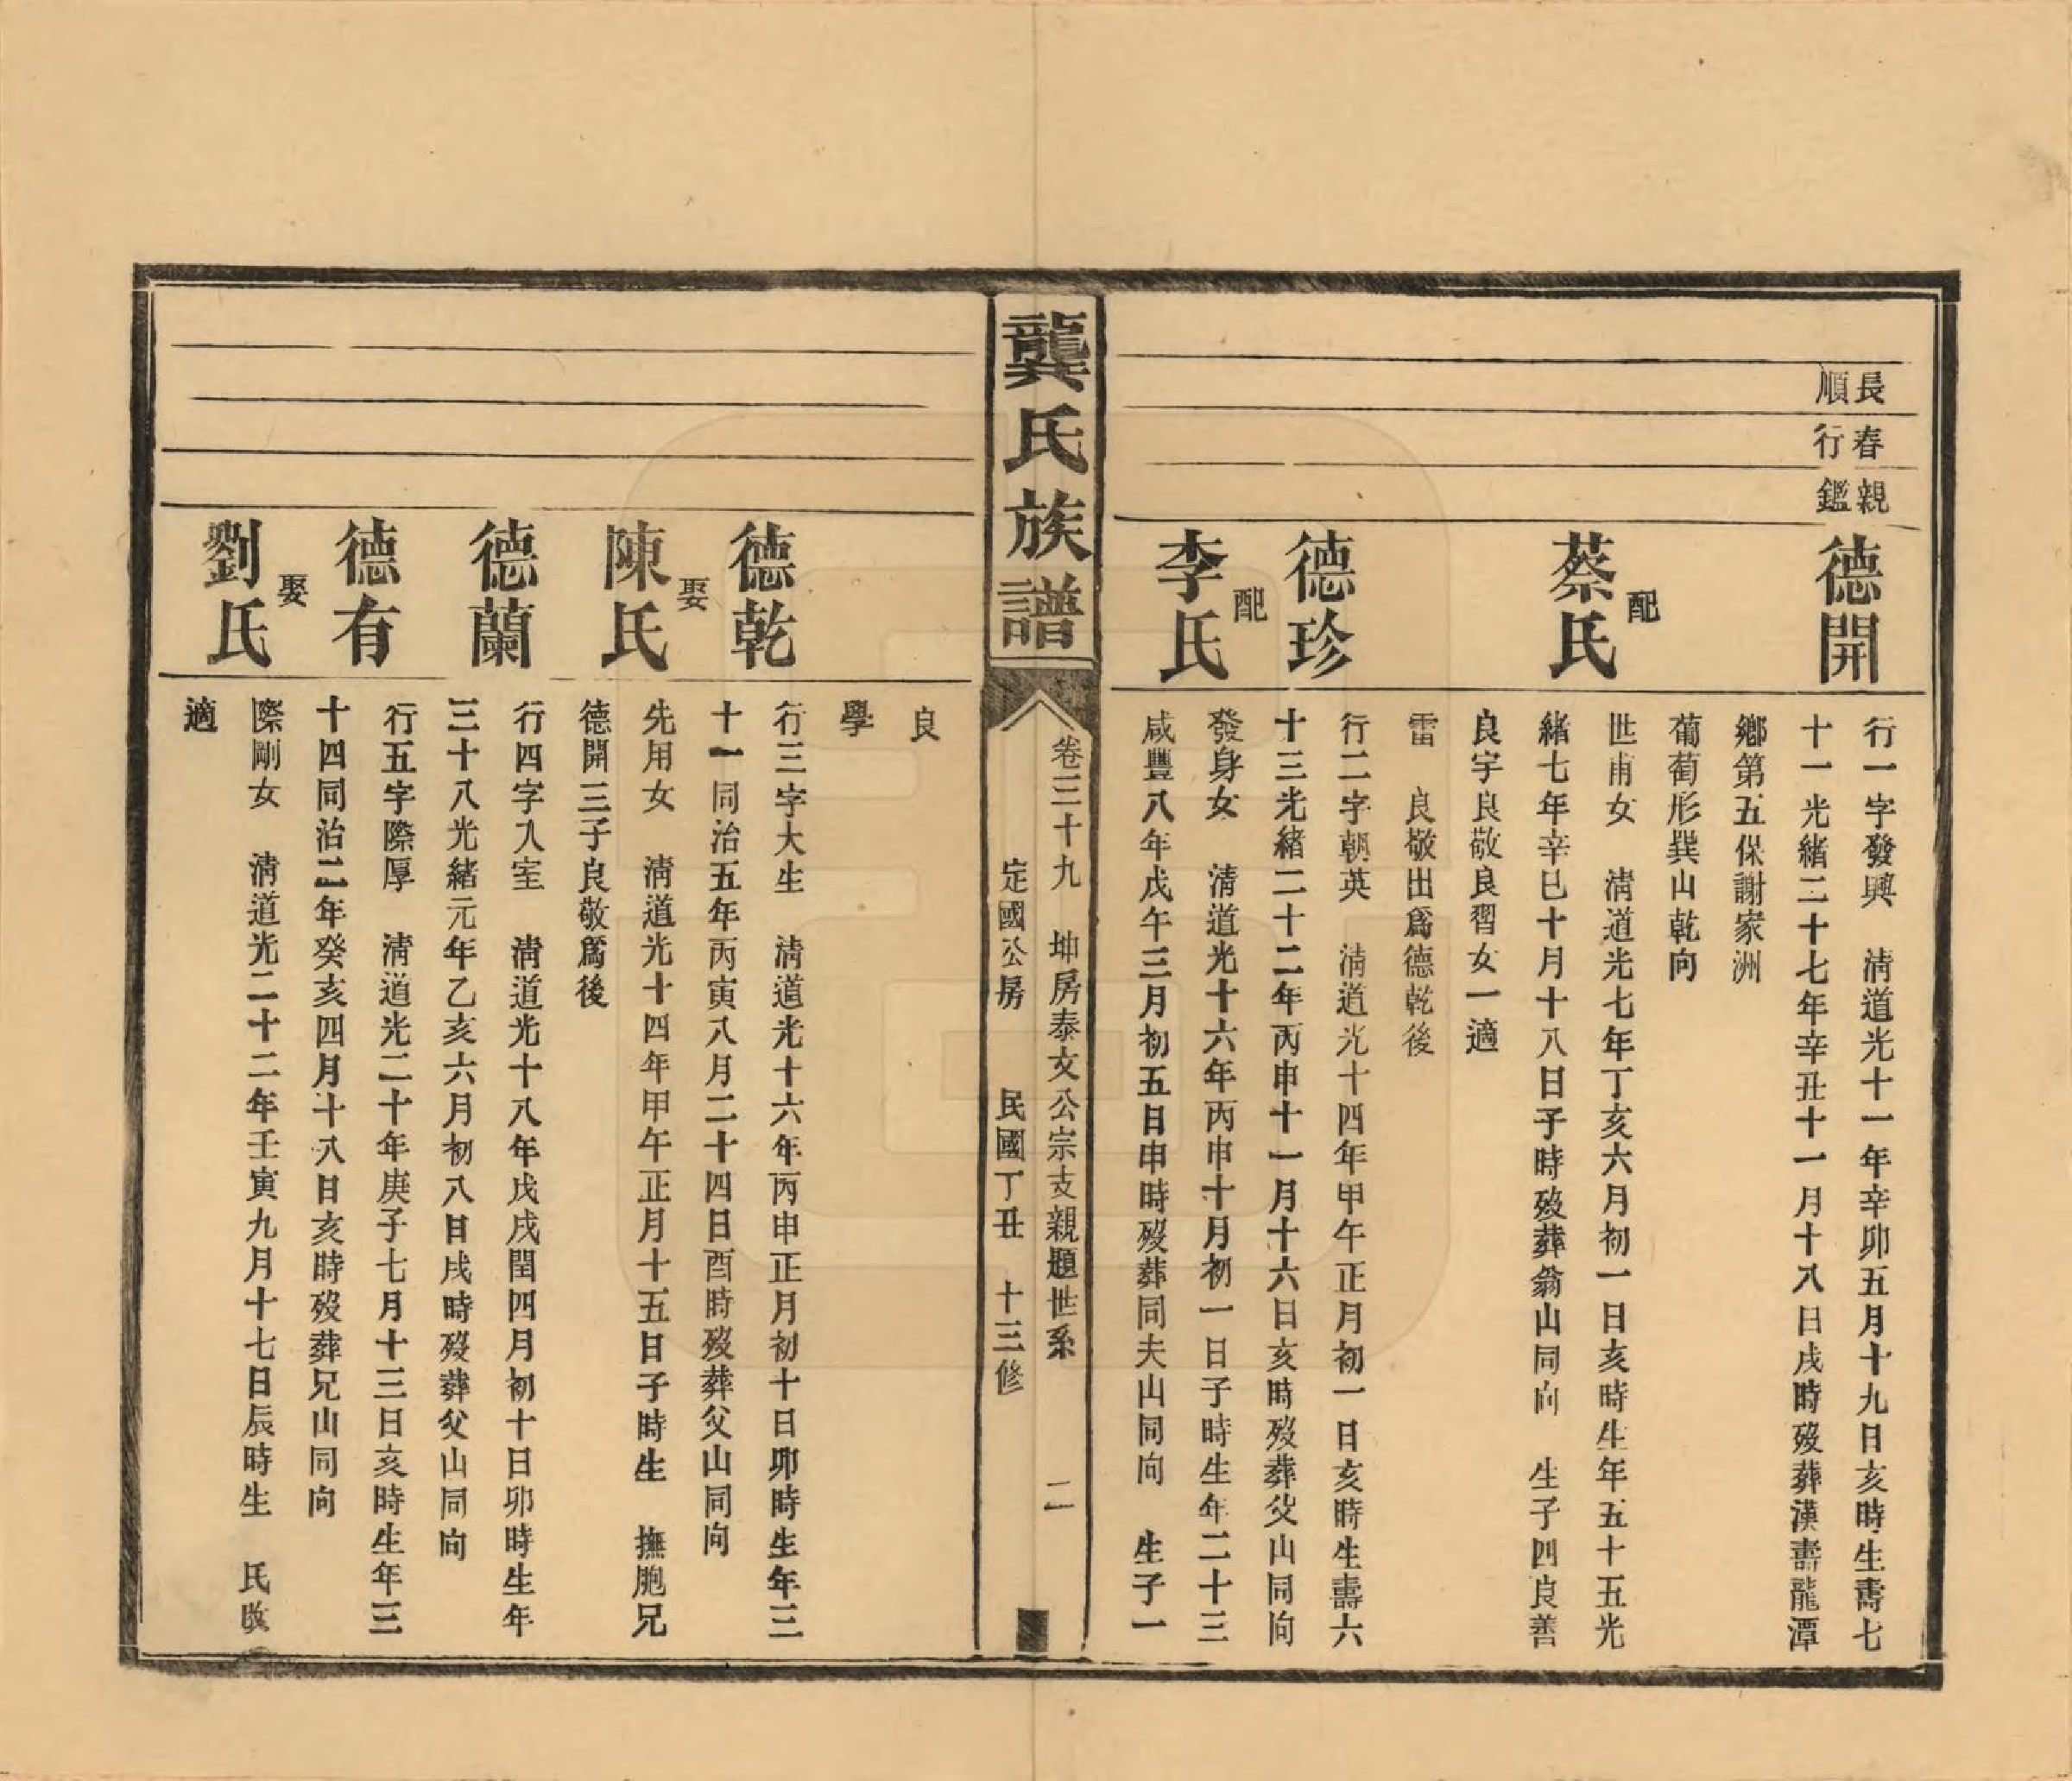 長順
春行
親鑑
德開
行一字發興　清道光十一年辛卯五月十九日亥時生壽七
十一光緒二十七年辛丑十一月十八日戌時歿葬漢壽龍潭
鄉第五保謝家洲
葡萄形巽山乾向
配
蔡氏
世甫女　清道光七年丁亥六月初一日亥時生年五十五光
緒七年辛巳十月十八日子時歿葬翁山同向　生子四良善
良宇良敬良習女一適
雷　良敬出爲德乾後
德珍
行二字朝英　清道光十四年甲午正月初一日亥時生壽六
十三光緒二十二年丙申十一月十六日亥時歿葬父山同向
配
李氏
發身女　清道光十六年丙申十月初一日子時生年二十三
咸豐八年戊午三月初五日申時歿葬同夫山同向　生子一
龔氏族譜
卷三十九　坤房泰文公宗支親題世系　二
定國公房　民國丁丑　十三修
良
學
德乾
行三字大生　清道光十六年丙申正月初十日卯時生年三
十一同治五年丙寅八月二十四日酉時歿葬父山同向
娶
陳氏
先用女　清道光十四年甲午正月十五日子時生　撫胞兄
德開三子良敬爲後
德蘭
行四字入室　清道光十八年戊戌閏四月初十日卯時生年
三十八光緒元年乙亥六月初八日戌時歿葬父山同向
德有
行五字際厚　清道光二十年庚子七月十三日亥時生年三
十四同治二年癸亥四月十八日亥時歿葬兄山同向
娶
劉氏
際剛女　清道光二十二年壬寅九月十七日辰時生　氏改
適